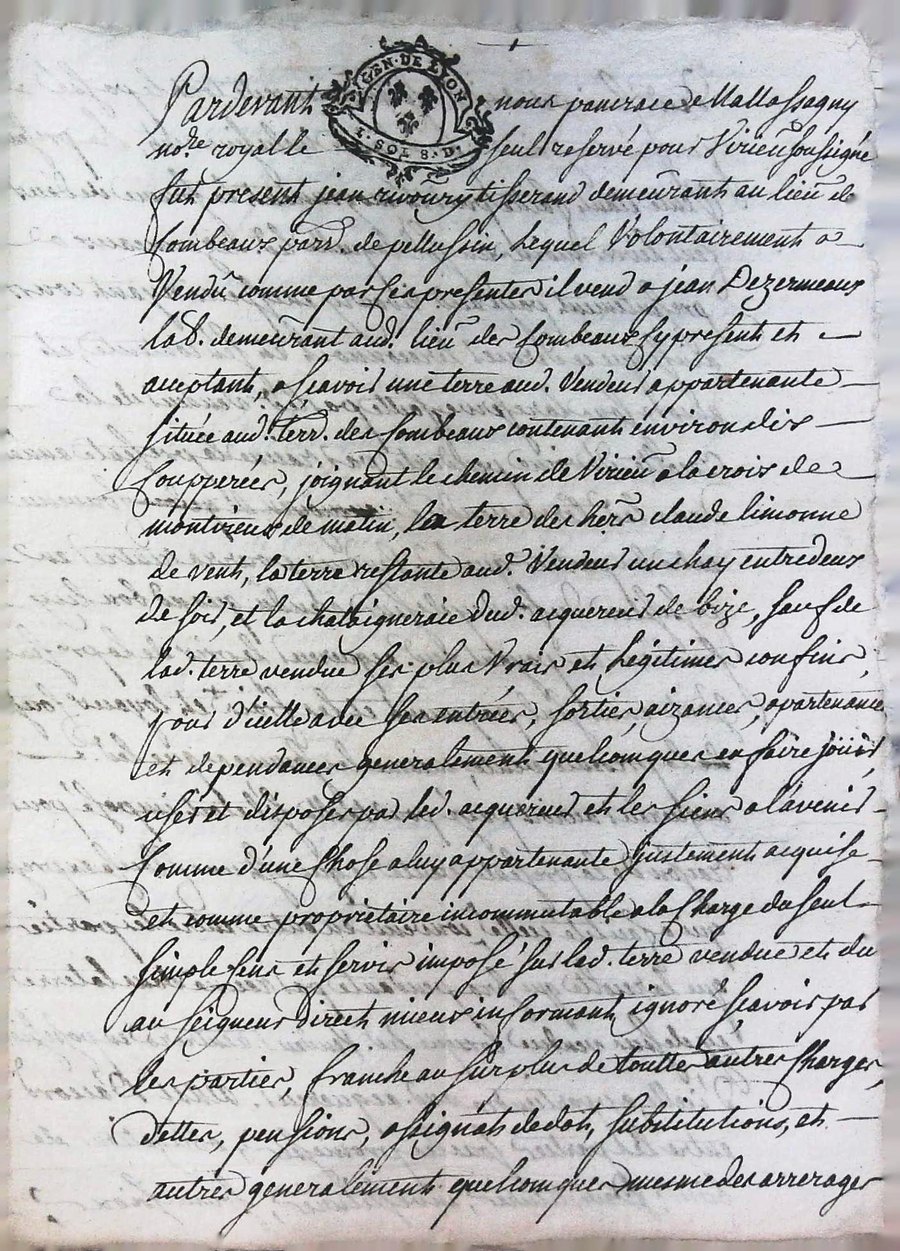 GEN. DE LYON
1. SOL 8. D.
Pardevant nous pancrace de Mallassagny
no.re royal le seul reservé pour Virieu soussigné
fut present jean rivoury tisserand demeurant au lieu de
Combeaux parr. de pellussin, lequel Volontairement a
Vendu comme par ses presentes il vend a jean Dezermeaux
lab. demeurant aud. lieu des Combeaux cy present et
acceptant, a sçavoir une terre aud. Vendeur appartenante
située aud. terr. des Combeaux contenant environ dix
Coupperées, joignant le chemin de Virieu a la croix de
montvieux de matin, la terre des hers. claude limonne
de vent, la terre restante aud. Vendeur un chay entredeux
de soir, et la chataigneraie dud. acquereur de bize, sauf de
lad. terre vendue ses plus Vrais et Légitimes confins,
pour d'icelle avec ses entrées, sorties, aizances, apartenances
et dependances generalement quelconques en faire joüir,
user et disposer par led. acquereur et les siens a l'avenir
Comme d'une Chose a luy appartenante justement acquise
et comme propriétaire incommutable a la Charge du seul
simple sens et servis imposé sur lad. terre vendue et du
au seigneur direct mieux informant, ignoré sçavoir par
les parties, franche au surplus de touttes autres Charges,
dettes, pensions, assignats de dot, substitutions, et
autres generalement quelconques mesme des arrerages